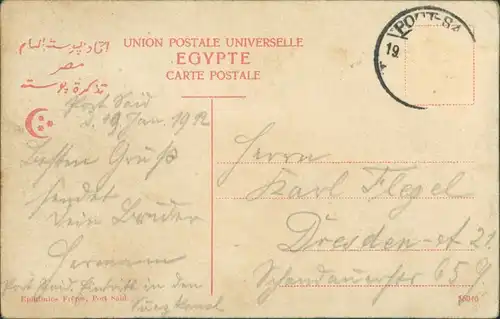 UNION POSTALE UNIVERSELLE
EGYPTE
CARTE POSTALE
اتحاد بوستة العام
مصر
تذكرة بوستة
PORT-SA
19
Port Said
d. 19 Jan. 1912
Besten Gruß
sendet
Dein Bruder
Hermann
Port Said. Eintritt in den
Suez Kanal
Herrn
Karl Flegel
Dresden-
21
Schandauerstr 65
Ephtimios Frères, Port Said